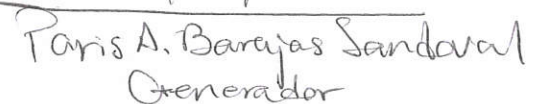 Paris A. Barajas Sandoval
Generador